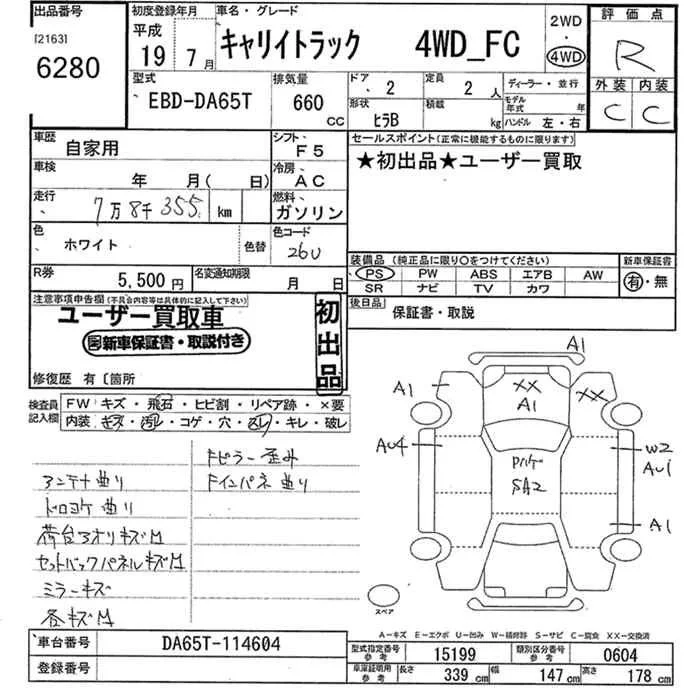 出品番号
[2163]
6280
初度登録年月
平成
19年 7月
車名・グレード
キャリイトラック 4WD_FC
2WD
・
4WD
評価点
R
外装 内装
C C
型式
EBD-DA65T
排気量
660
CC
ドア 2
定員 2人
ディーラー・並行
形状 ヒラB
積載 kg
モデル年式 年
ハンドル 左・右
車歴 自家用
シフト F5
車検 年 月( 日)
冷房 AC
走行 7万8千355 km
燃料 ガソリン
色 ホワイト 色替
色コード 26U
R券 5,500円
名変通知期限 月 日
セールスポイント(正常に機能するものに限ります)
★初出品★ユーザー買取
装備品(純正品に限り○をつけてください)
PS PW ABS エアB AW
SR ナビ TV カワ
新車保証書
有・無
後日品 保証書・取説
注意事項申告欄(不具合内容等は具体的に記入して下さい)
ユーザー買取車
新車保証書・取説付き
初出品
修復歴 有〔箇所
検査員記入欄
FW キズ・飛石・ヒビ割・リペア跡・×要
内装・キズ・汚れ・コゲ・穴・凹レ・キレ・破レ
Fピラー歪み
アンテナ曲り Fインパネ曲り
ドロヨケ曲り
荷台アオリキズM
セットバックパネルキズM
ミラーキズ
各キズM
A1
A1
XX
A1
XX
AU4
W2
AU1
SA2
A1
スペア
A-キズ E-エクボ U-凹み W-補修跡 S-サビ C-腐食 XX-交換済
車台番号 DA65T-114604
登録番号
型式指定番号 参考 15199
類別区分番号 参考 0604
車庫証明用 参考 長さ 339cm 幅 147cm 高さ 178cm